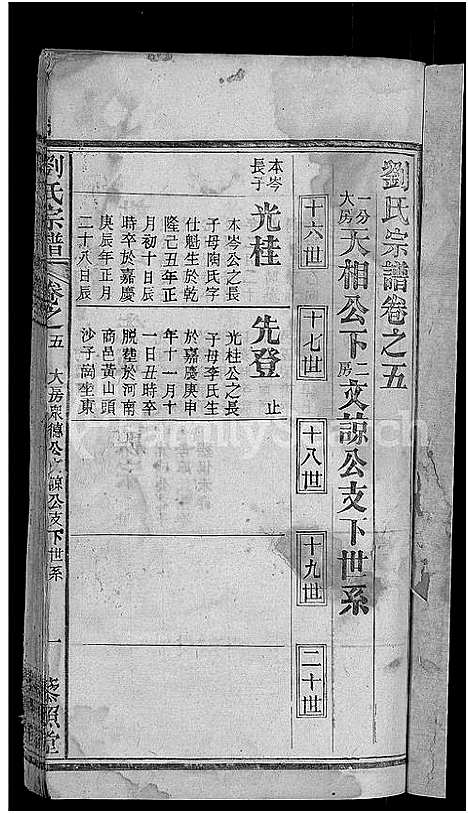 劉氏宗譜卷之五
一分大房大相公下二房文諒公支下世系
十六世
十七世
十八世
十九世
二十世
本岑長子
光桂
本岑公之長
子母陶氏字
仕魁生於乾
隆己丑年正
月初十日辰
時卒於嘉慶
庚辰年正月
二十八日辰
先登
止
光桂公之長
子母李氏生
於嘉慶庚申
年十一月十
一日丑時卒
脫塟於河南
商邑黃山頭
沙子崗坐東
劉氏宗譜
卷之五
大房
公文諒公支下世系
一
黎照堂
FamilySearch